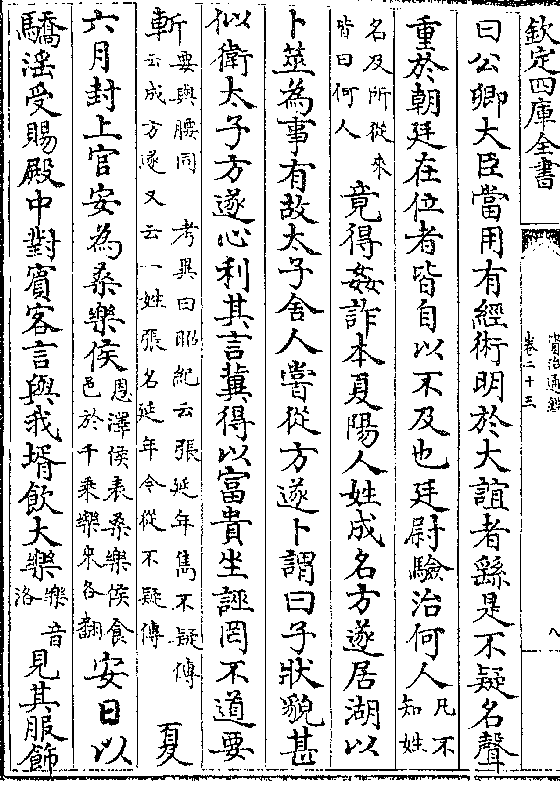 欽定四庫全書
資治通鑑
卷二十三
八
曰公卿大臣當用有經術明於大誼者繇是不疑名聲
重於朝廷在位者皆自以不及也廷尉驗治何人凡不
知姓
名及所從來
皆曰何人竟得姦詐本夏陽人姓成名方遂居湖以
卜筮為事有故太子舍人嘗從方遂卜謂曰子狀貌甚
似衛太子方遂心利其言冀得以富貴坐誣罔不道要
斬要與腰同 考異曰昭紀云張延年雋不疑傳
云成方遂又云一姓張名延年今從不疑傳夏
六月封上官安為桑樂侯恩澤侯表桑樂侯食
邑於千乘樂來各翻安日以
驕淫受賜殿中對賓客言與我壻飲大樂樂音
洛見其服飾